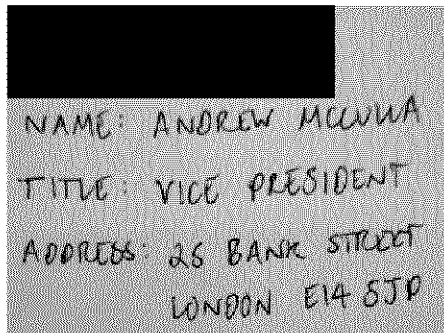 NAME: ANDREW MCCULLA
TITLE: VICE PRESIDENT
ADDRESS: 25 BANK STREET
LONDON E14 5JP